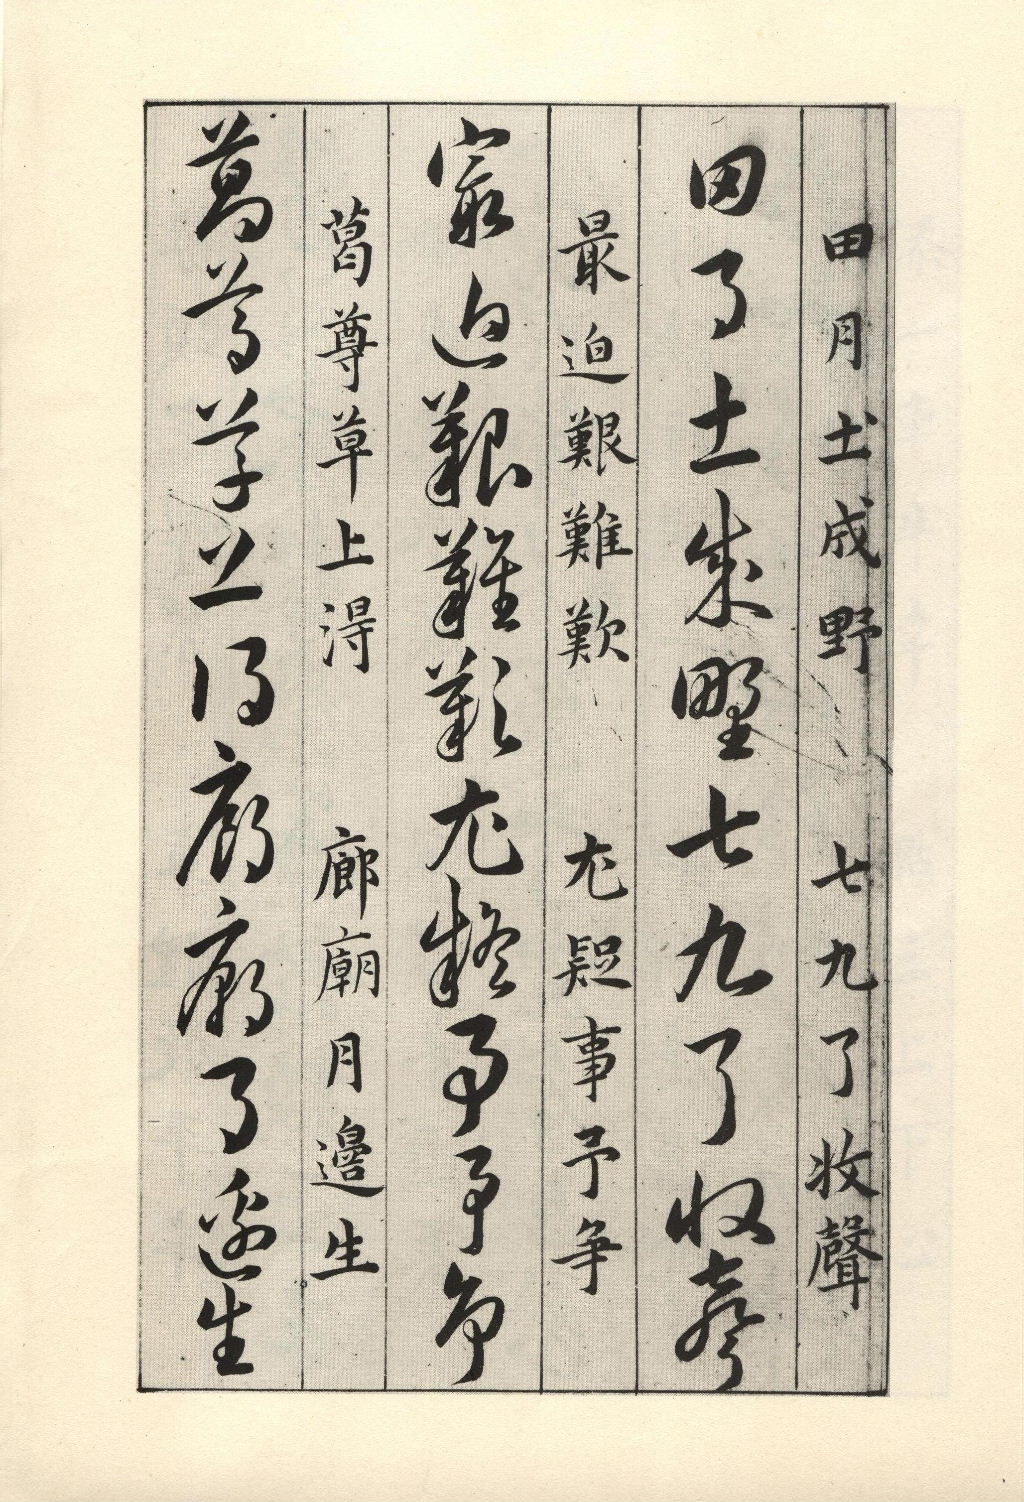 田月土成野 七九了收聲
田月土成野七九了收聲
最迫艱難歎 尤疑事予爭
最迫艱難歎尤疑事予爭
葛尊草上得 廊廟月邊生
葛尊草上得廊廟月邊生